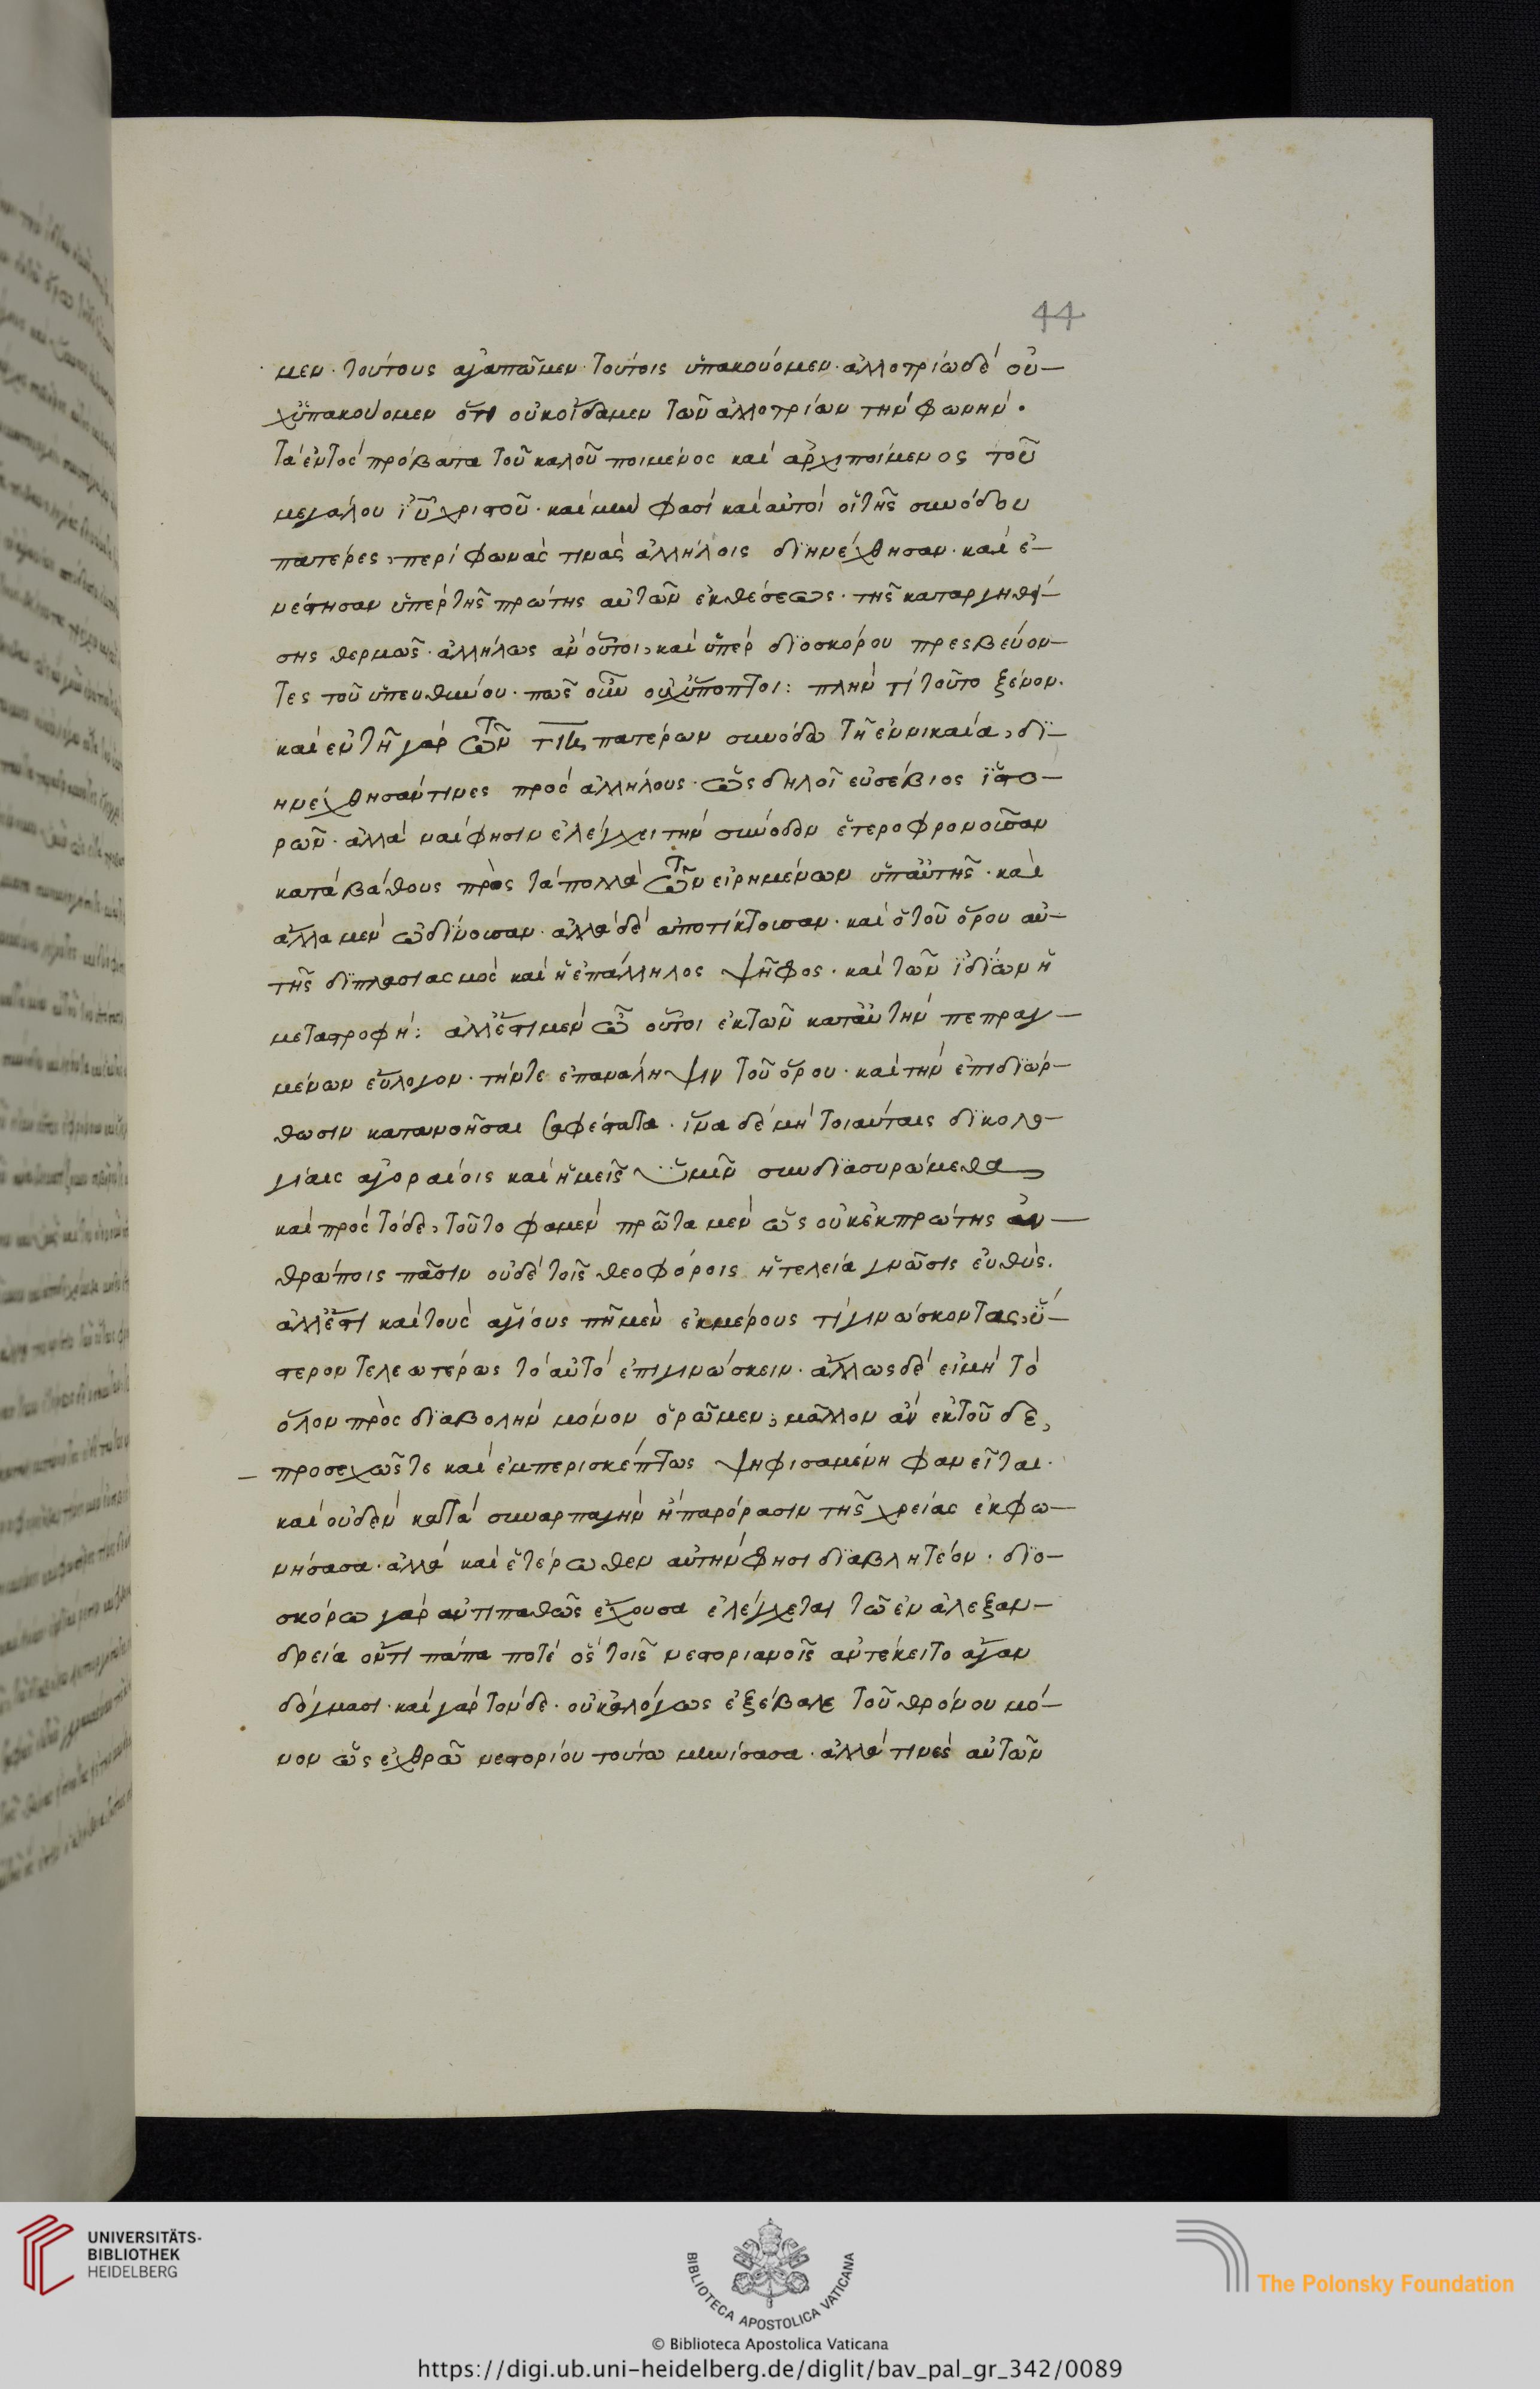 44
μεν· τούτους ἀγαπῶμεν· τούτοις ὑπακούομεν· ἀλλοτρίω δὲ οὐ-
χ ὑπακούομεν ὅτι οὐκ οἴδαμεν τῶν ἀλλοτρίων τὴν φωνήν.
Τὰ ἐντὸς πρόβατα τοῦ καλοῦ ποιμένος καὶ ἀρχιποίμενος τοῦ
μεγάλου ἰῦ χριστοῦ· καὶ μὴν φασὶ καὶ αὐτοὶ οἱ τῆς συνόδου
πατέρες, περὶ φωνάς τινας ἀλλήλοις διηνέχθησαν· καὶ ἐ-
νέστησαν ὑπὲρ τῆς πρώτης αὐτῶν ἐκθέσεως· τῆς καταργηθεί-
σης θερμῶς· ἀλλήλως ἂν οὗτοι, καὶ ὑπὲρ διοσκόρου πρεσβεύον-
τες τοῦ ὑπευθύνου· πῶς οὖν οὐχ ὕποπτοι: πλὴν τί τοῦτο ξένον.
καὶ ἐν τῇ γὰρ τῶν τιη πατέρων συνόδω τῇ ἐν νικαία, δι-
ηνέχθησάν τινες πρὸς ἀλλήλους· ὡς δηλοῖ εὐσέβιος ἱστο-
ρῶν· ἀλλὰ ναί φησιν ἐλέγχει τὴν σύνοδον ἑτεροφρονοῦσαν
κατὰ βάθους πρὸς τὰ πολλὰ τῶν εἰρημένων ὑπ' αὐτῆς· καὶ
ἄλλα μὲν ὠδίνουσαν· ἄλλα δὲ ἀποτίκτουσαν· καὶ ὁ τοῦ ὅρου αὐ-
τῆς διπλασιασμὸς καὶ ἡ ἐπάλληλος ψῆφος· καὶ τῶν ἰδίων ἡ
μεταστροφή: ἀλλ' ἔστι μὲν ὦ οὗτοι ἐκ τῶν κατ' αὐτὴν πεπραγ-
μένων εὔλογον· τήν τε ἐπανάληψιν τοῦ ὅρου· καὶ τὴν ἐπιδιόρ-
θωσιν κατανοῆσαι σαφέστατα· ἵνα δὲ μὴ τοιαύταις δικολο-
γίαις ἀγοραίοις καὶ ἡμεῖς ὑμῖν συνδιασυρώμεθα
καὶ πρὸς τόδε, τοῦτο φαμὲν πρῶτα μὲν ὡς οὐκ ἐκ πρώτης ἀν-
θρώποις πᾶσιν οὐδὲ τοῖς θεοφόροις ἡ τελεία γνῶσις εὐθύς.
ἀλλ' ἔστι καὶ τοὺς ἁγίους πῆ μὲν ἐκ μέρους τί γινώσκοντας, ὕ-
στερον τελεωτέρως τὸ αὐτὸ ἐπιγινώσκειν· ἄλλως δὲ εἰ μὴ τὸ
ὅλον πρὸς διαβολὴν μόνον ὁρῶμεν, μᾶλλον ἂν ἐκ τοῦδε,
προσεχῶς τε καὶ ἐμπερισκέπτως ψηφισαμένη φανεῖται.
καὶ οὐδὲν κατὰ συναρπαγὴν ἢ παρόρασιν τῆς χρείας ἐκφω-
νήσασα· ἀλλὰ καὶ ἑτέρωθεν αὐτὴν φησὶ διαβλητέον: διο-
σκόρω γὰρ ἀντιπαθῶς ἔχουσα ἐλέγχεται τῶ ἐν ἀλεξαν-
δρεία ὄντι πάπα ποτὲ ὃς τοῖς νεστοριανοῖς ἀντέκειτο ἄγαν
δόγμασι· καὶ γὰρ τόνδε· οὐκ ἀλόγως ἐξέβαλε τοῦ θρόνου μό-
νον ὡς ἐχθρῶ νεστορίου τούτω μηνίσασα· ἀλλὰ τινὲς αὐτῶν
UNIVERSITÄTS-
BIBLIOTHEK
HEIDELBERG
BIBLIOTECA APOSTOLICA VATICANA
The Polonsky Foundation
© Biblioteca Apostolica Vaticana
https://digi.ub.uni-heidelberg.de/diglit/bav_pal_gr_342/0089